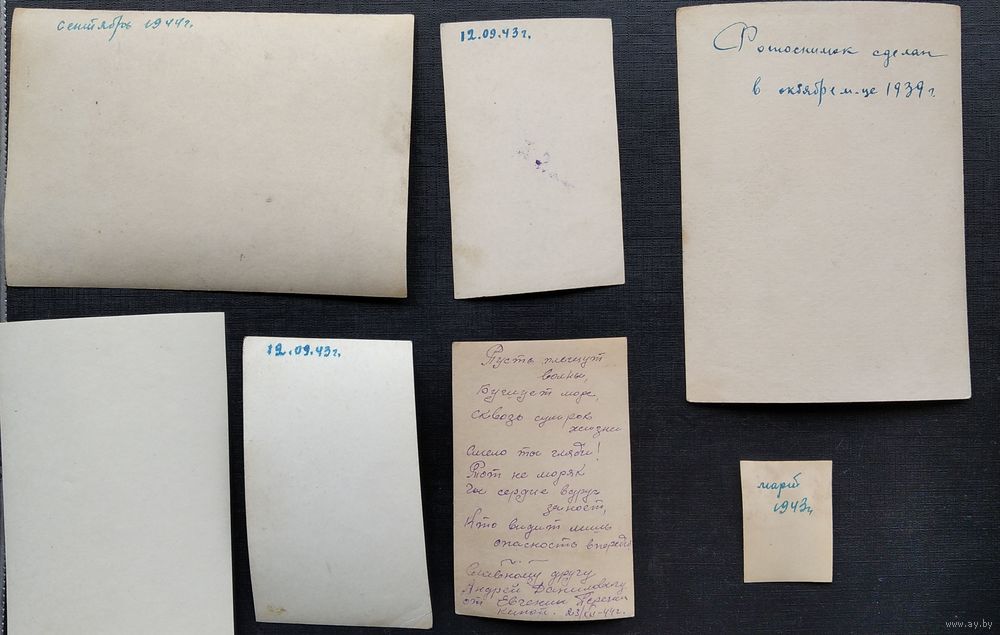 Сентябрь 1944г.
12.09.43г.
Фотоснимок сделан
в октябре м-це 1939г.
12.09.43г.
Пусть плещут
волны,
Бушует море,
Сквозь сумрак
жизни
Смело ты гляди!
Тот не моряк
Чье сердце вдруг
заноет,
Кто видит лишь
опасность впереди
Славному другу
Андрей Даниловичу
от Евгении
23/XII-44г.
март
1943г.
www.ay.by